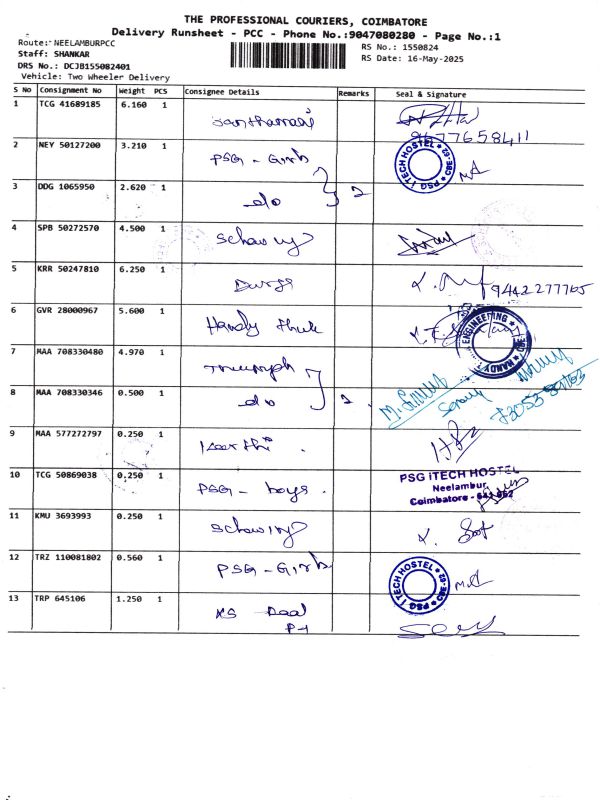 THE PROFESSIONAL COURIERS, COIMBATORE
Delivery Runsheet - PCC - Phone No.:9047080280 - Page No.:1
Route: NEELAMBURPCC
Staff: SHANKAR
DRS No.: DCJB155082401
Vehicle: Two Wheeler Delivery
RS No.: 1550824
RS Date: 16-May-2025
S No Consignment No Weight PCS Consignee Details Remarks Seal & Signature
1 TCG 41689185 6.160 1
9677658411
2 NEY 50127200 3.210 1 PSG - Girls
PSG iTECH HOSTEL CBE-62
3 DDG 1065950 2.620 1 do 2
4 SPB 50272570 4.500 1
5 KRR 50247810 6.250 1 9442277765
6 GVR 28000967 5.600 1 Handy
ENGINEERING
7 MAA 708330480 4.970 1 Triumph
8 MAA 708330346 0.500 1 do 2
9 MAA 577272797 0.250 1 Keerthi
10 TCG 50869038 0.250 1 PSG - boys
PSG iTECH HOSTEL
Neelambur,
Coimbatore - 641 062
11 KMU 3693993 0.250 1
12 TRZ 110081802 0.560 1 PSG - Girls
PSG iTECH HOSTEL CBE-62
13 TRP 645106 1.250 1 KS